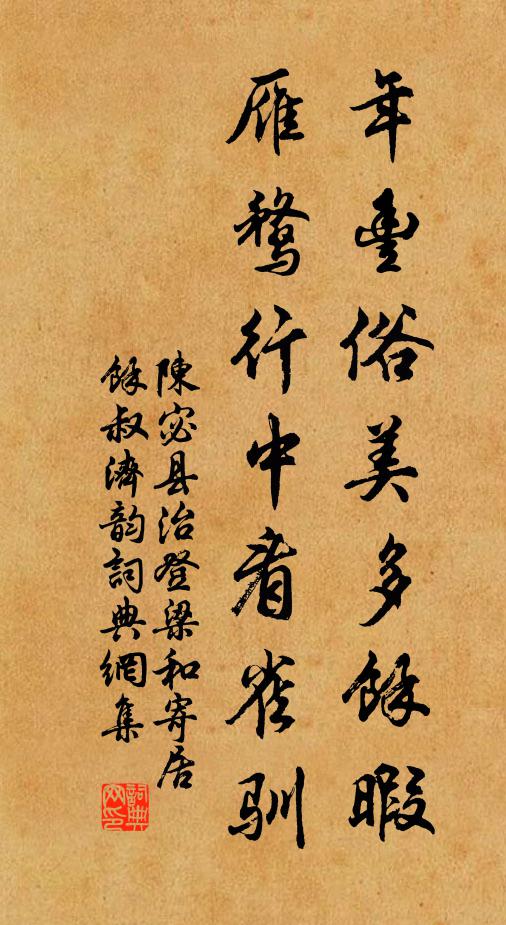 年豐俗美多餘暇
雁鶩行中看雀馴
陳宓县治登梁和寄居
餘叔濟韵詞典網集